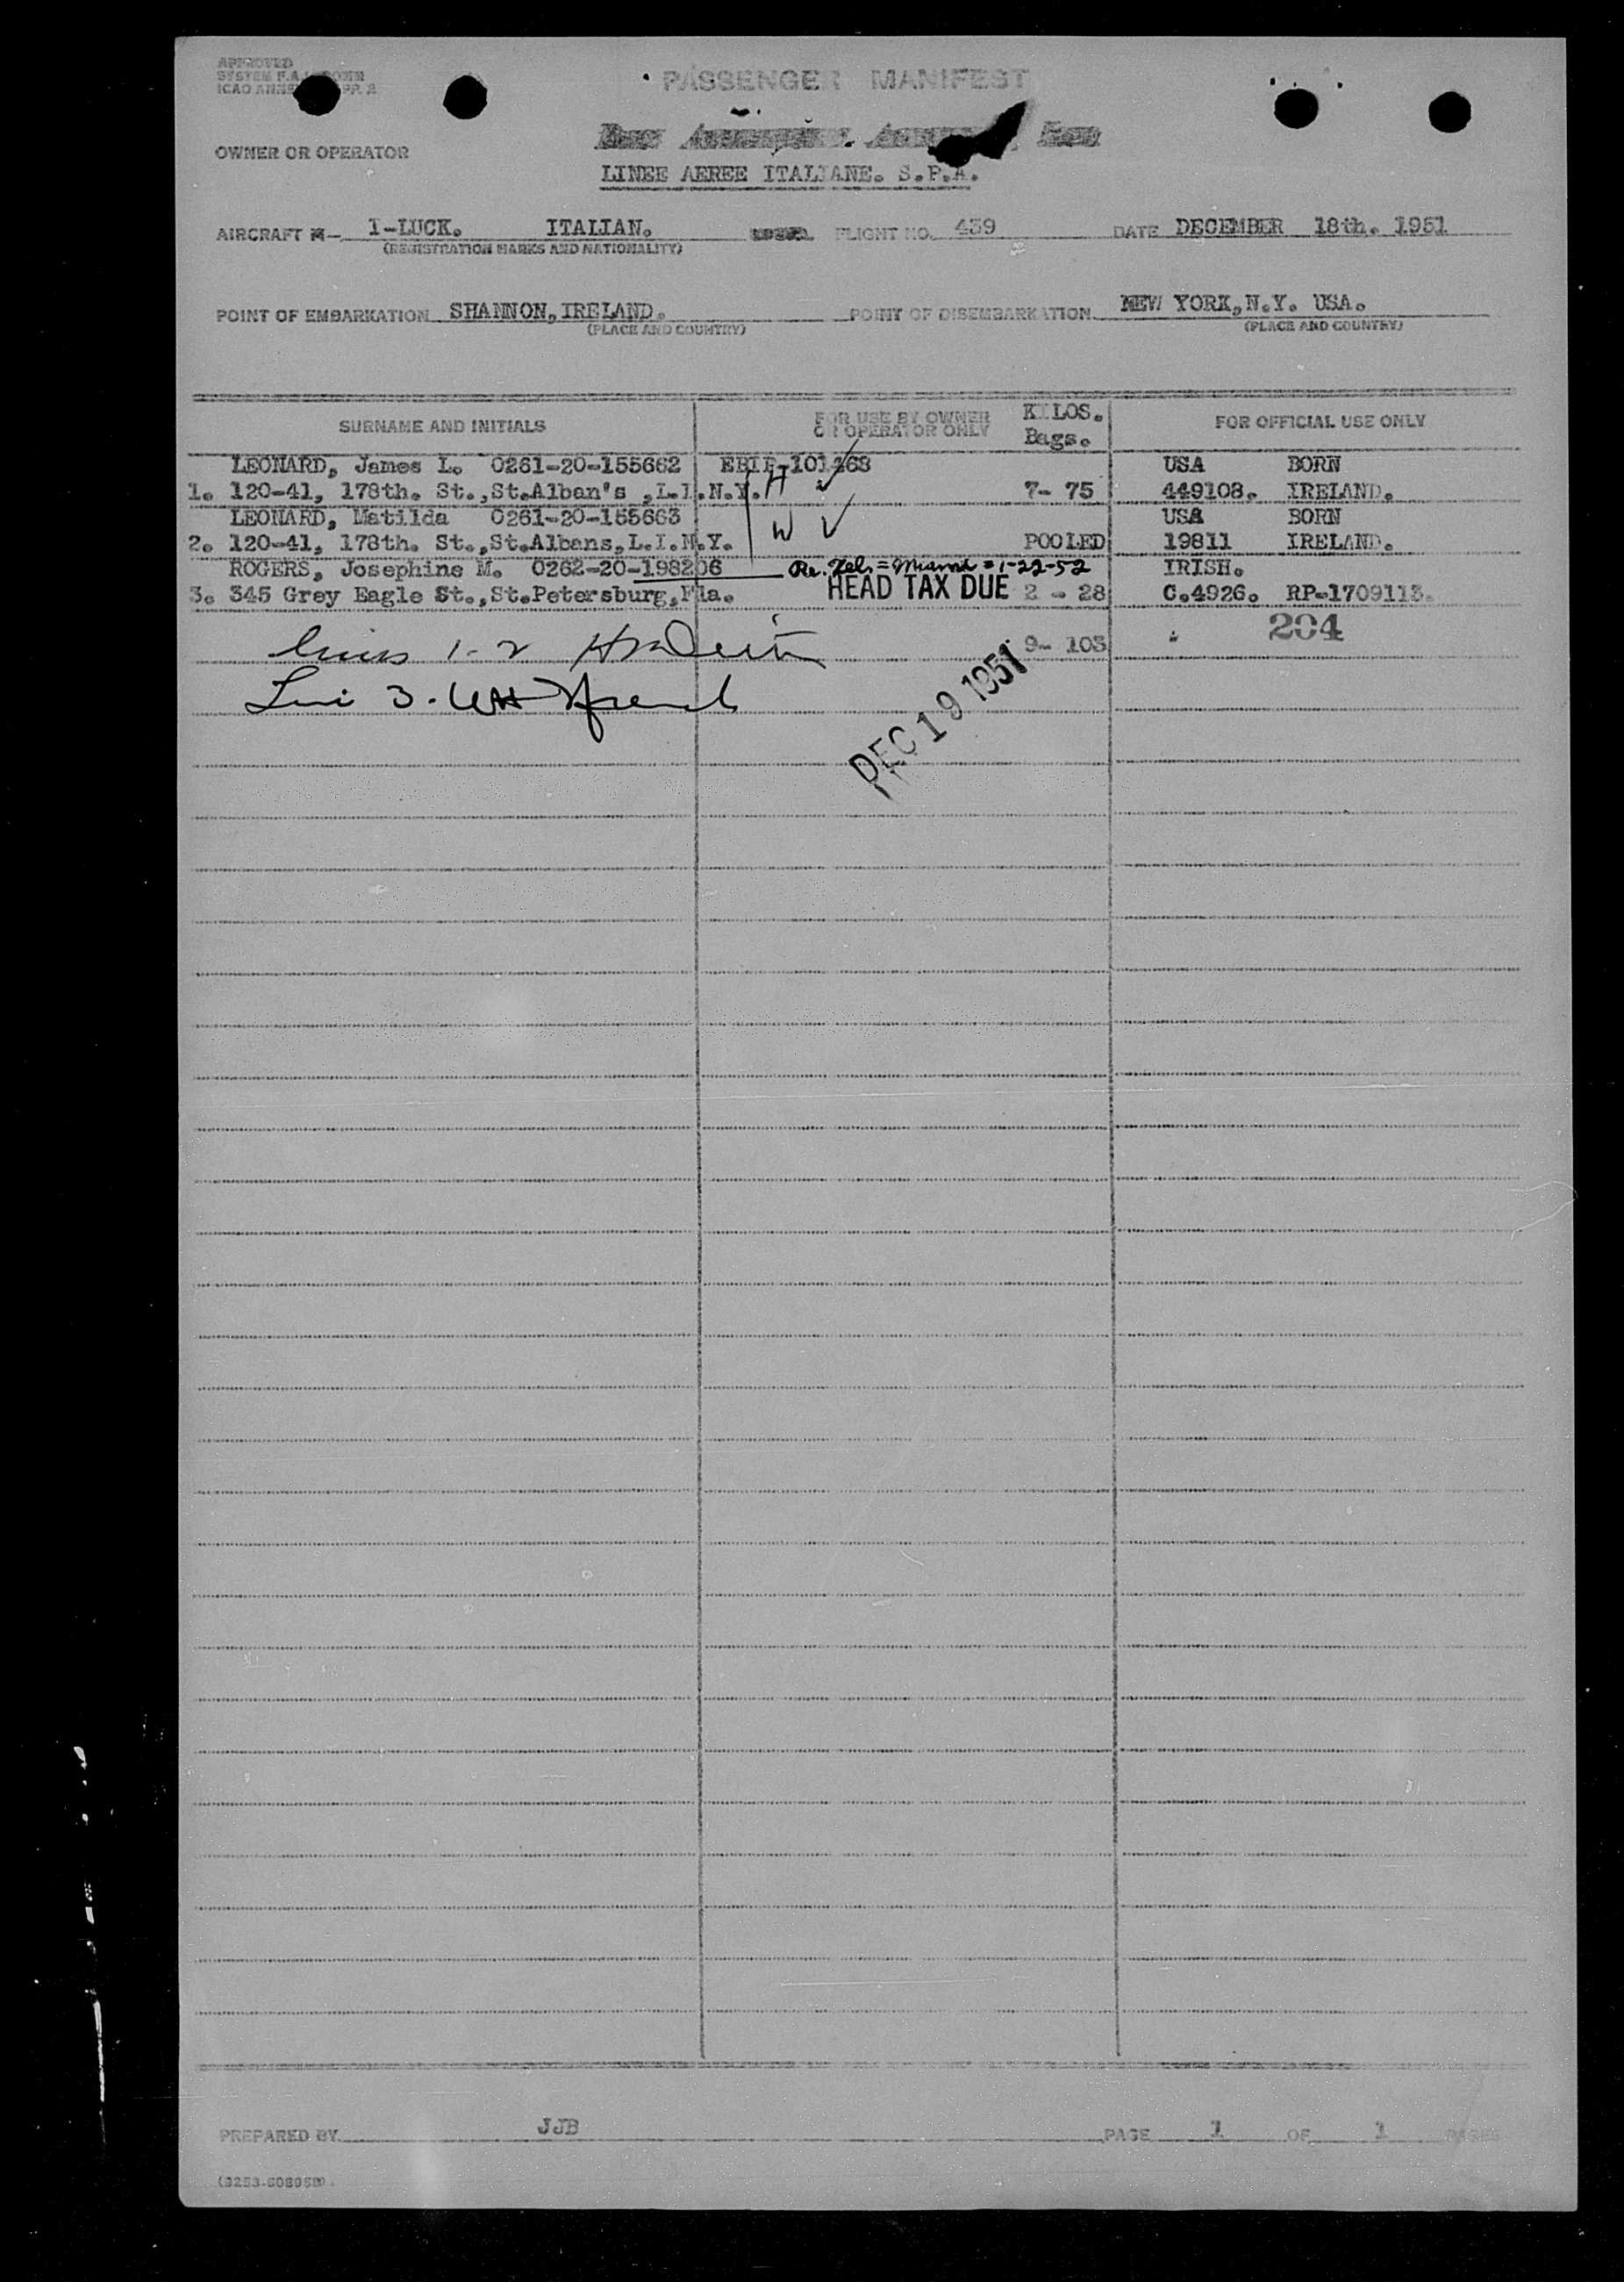 APPROVED
PASSENGER MANIFEST
OWNER OR OPERATOR
LINEE AEREE ITALIANE. S.P.A.
AIRCRAFT I-LUCK. ITALIAN. FLIGHT NO. 439 DATE DECEMBER 18th. 1951
(REGISTRATION MARKS AND NATIONALITY)
POINT OF EMBARKATION SHANNON, IRELAND. POINT OF DISEMBARKATION NEW YORK, N.Y. USA.
(PLACE AND COUNTRY) (PLACE AND COUNTRY)
SURNAME AND INITIALS FOR USE BY OWNER OR OPERATOR ONLY KILOS. Bags. FOR OFFICIAL USE ONLY
LEONARD, James L. 0261-20-155662 USA BORN
1. 120-41, 178th. St.,St.Alban's ,L.I.N.Y. H ✓ 7- 75 449108. IRELAND.
LEONARD, Matilda 0261-20-155663 USA BORN
2. 120-41, 178th. St.,St.Albans,L.I.N.Y. W ✓ POOLED 19811 IRELAND.
ROGERS, Josephine M. 0262-20-198206 Re. = Miami = 1-22-52 IRISH.
3. 345 Grey Eagle St.,St.Petersburg,Fla. HEAD TAX DUE 2 - 28 C.4926. RP-1709113.
204
1-2 9- 103
3.
DEC 19 1951
PREPARED BY JJB PAGE 1 OF 1 PAGES